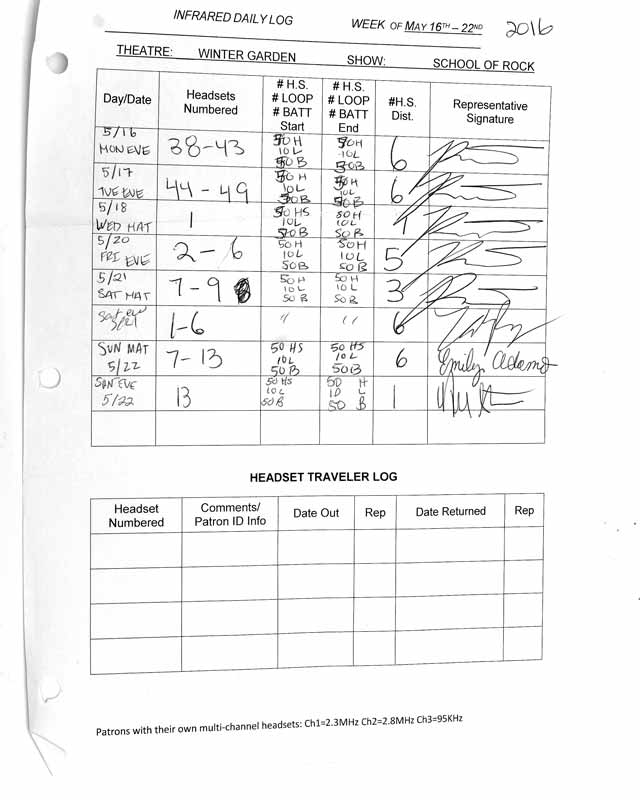 INFRARED DAILY LOG WEEK OF MAY 16TH – 22ND 2016
THEATRE: WINTER GARDEN SHOW: SCHOOL OF ROCK
Day/Date
Headsets
Numbered
# H.S.
# LOOP
# BATT
Start
# H.S.
# LOOP
# BATT
End
#H.S.
Dist.
Representative
Signature
5/16
MON EVE
38-43
50H
10L
50B
50H
10L
50B
6
5/17
TUE EVE
44-49
50H
10L
50B
50H
10L
50B
6
5/18
WED MAT
1
50HS
10L
50B
50H
10L
50B
1
5/20
FRI EVE
2-6
50H
10L
50B
50H
10L
50B
5
5/21
SAT MAT
7-9
50H
10L
50B
50H
10L
50B
3
Sat eve
5/21
1-6
"
"
6
SUN MAT
5/22
7-13
50 HS
10L
50B
50 HS
10L
50B
6
Emily Adams
SUN EVE
5/22
13
50 HS
10L
50B
50 H
10 L
50 B
1
HEADSET TRAVELER LOG
Headset
Numbered
Comments/
Patron ID Info
Date Out
Rep
Date Returned
Rep
Patrons with their own multi-channel headsets: Ch1=2.3MHz Ch2=2.8MHz Ch3=95KHz